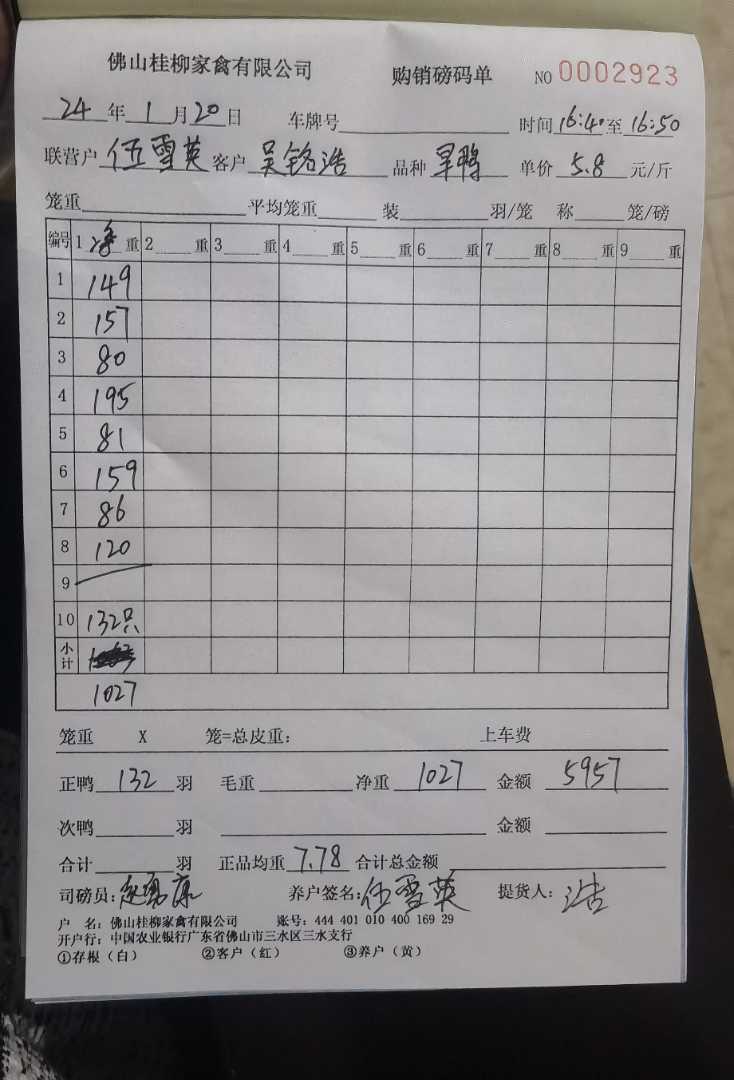 佛山桂柳家禽有限公司 购销磅码单 NO 0002923
24 年 1 月 20 日 车牌号 时间 16:40 至 16:50
联营户 伍雪英 客户 吴铭浩 品种 旱鸭 单价 5.8 元/斤
笼重 平均笼重 装 羽/笼 称 笼/磅
编号 1 净 重 2 重 3 重 4 重 5 重 6 重 7 重 8 重 9 重
1 149
2 157
3 80
4 195
5 81
6 159
7 86
8 120
9
10 132只
小计
1027
笼重 X 笼=总皮重: 上车费
正鸭 132 羽 毛重 净重 1027 金额 5957
次鸭 羽 金额
合计 羽 正品均重 7.78 合计总金额
司磅员: 养户签名: 伍雪英 提货人: 浩
户 名: 佛山桂柳家禽有限公司 账号: 444 401 010 400 169 29
开户行: 中国农业银行广东省佛山市三水区三水支行
①存根(白) ②客户(红) ③养户(黄)